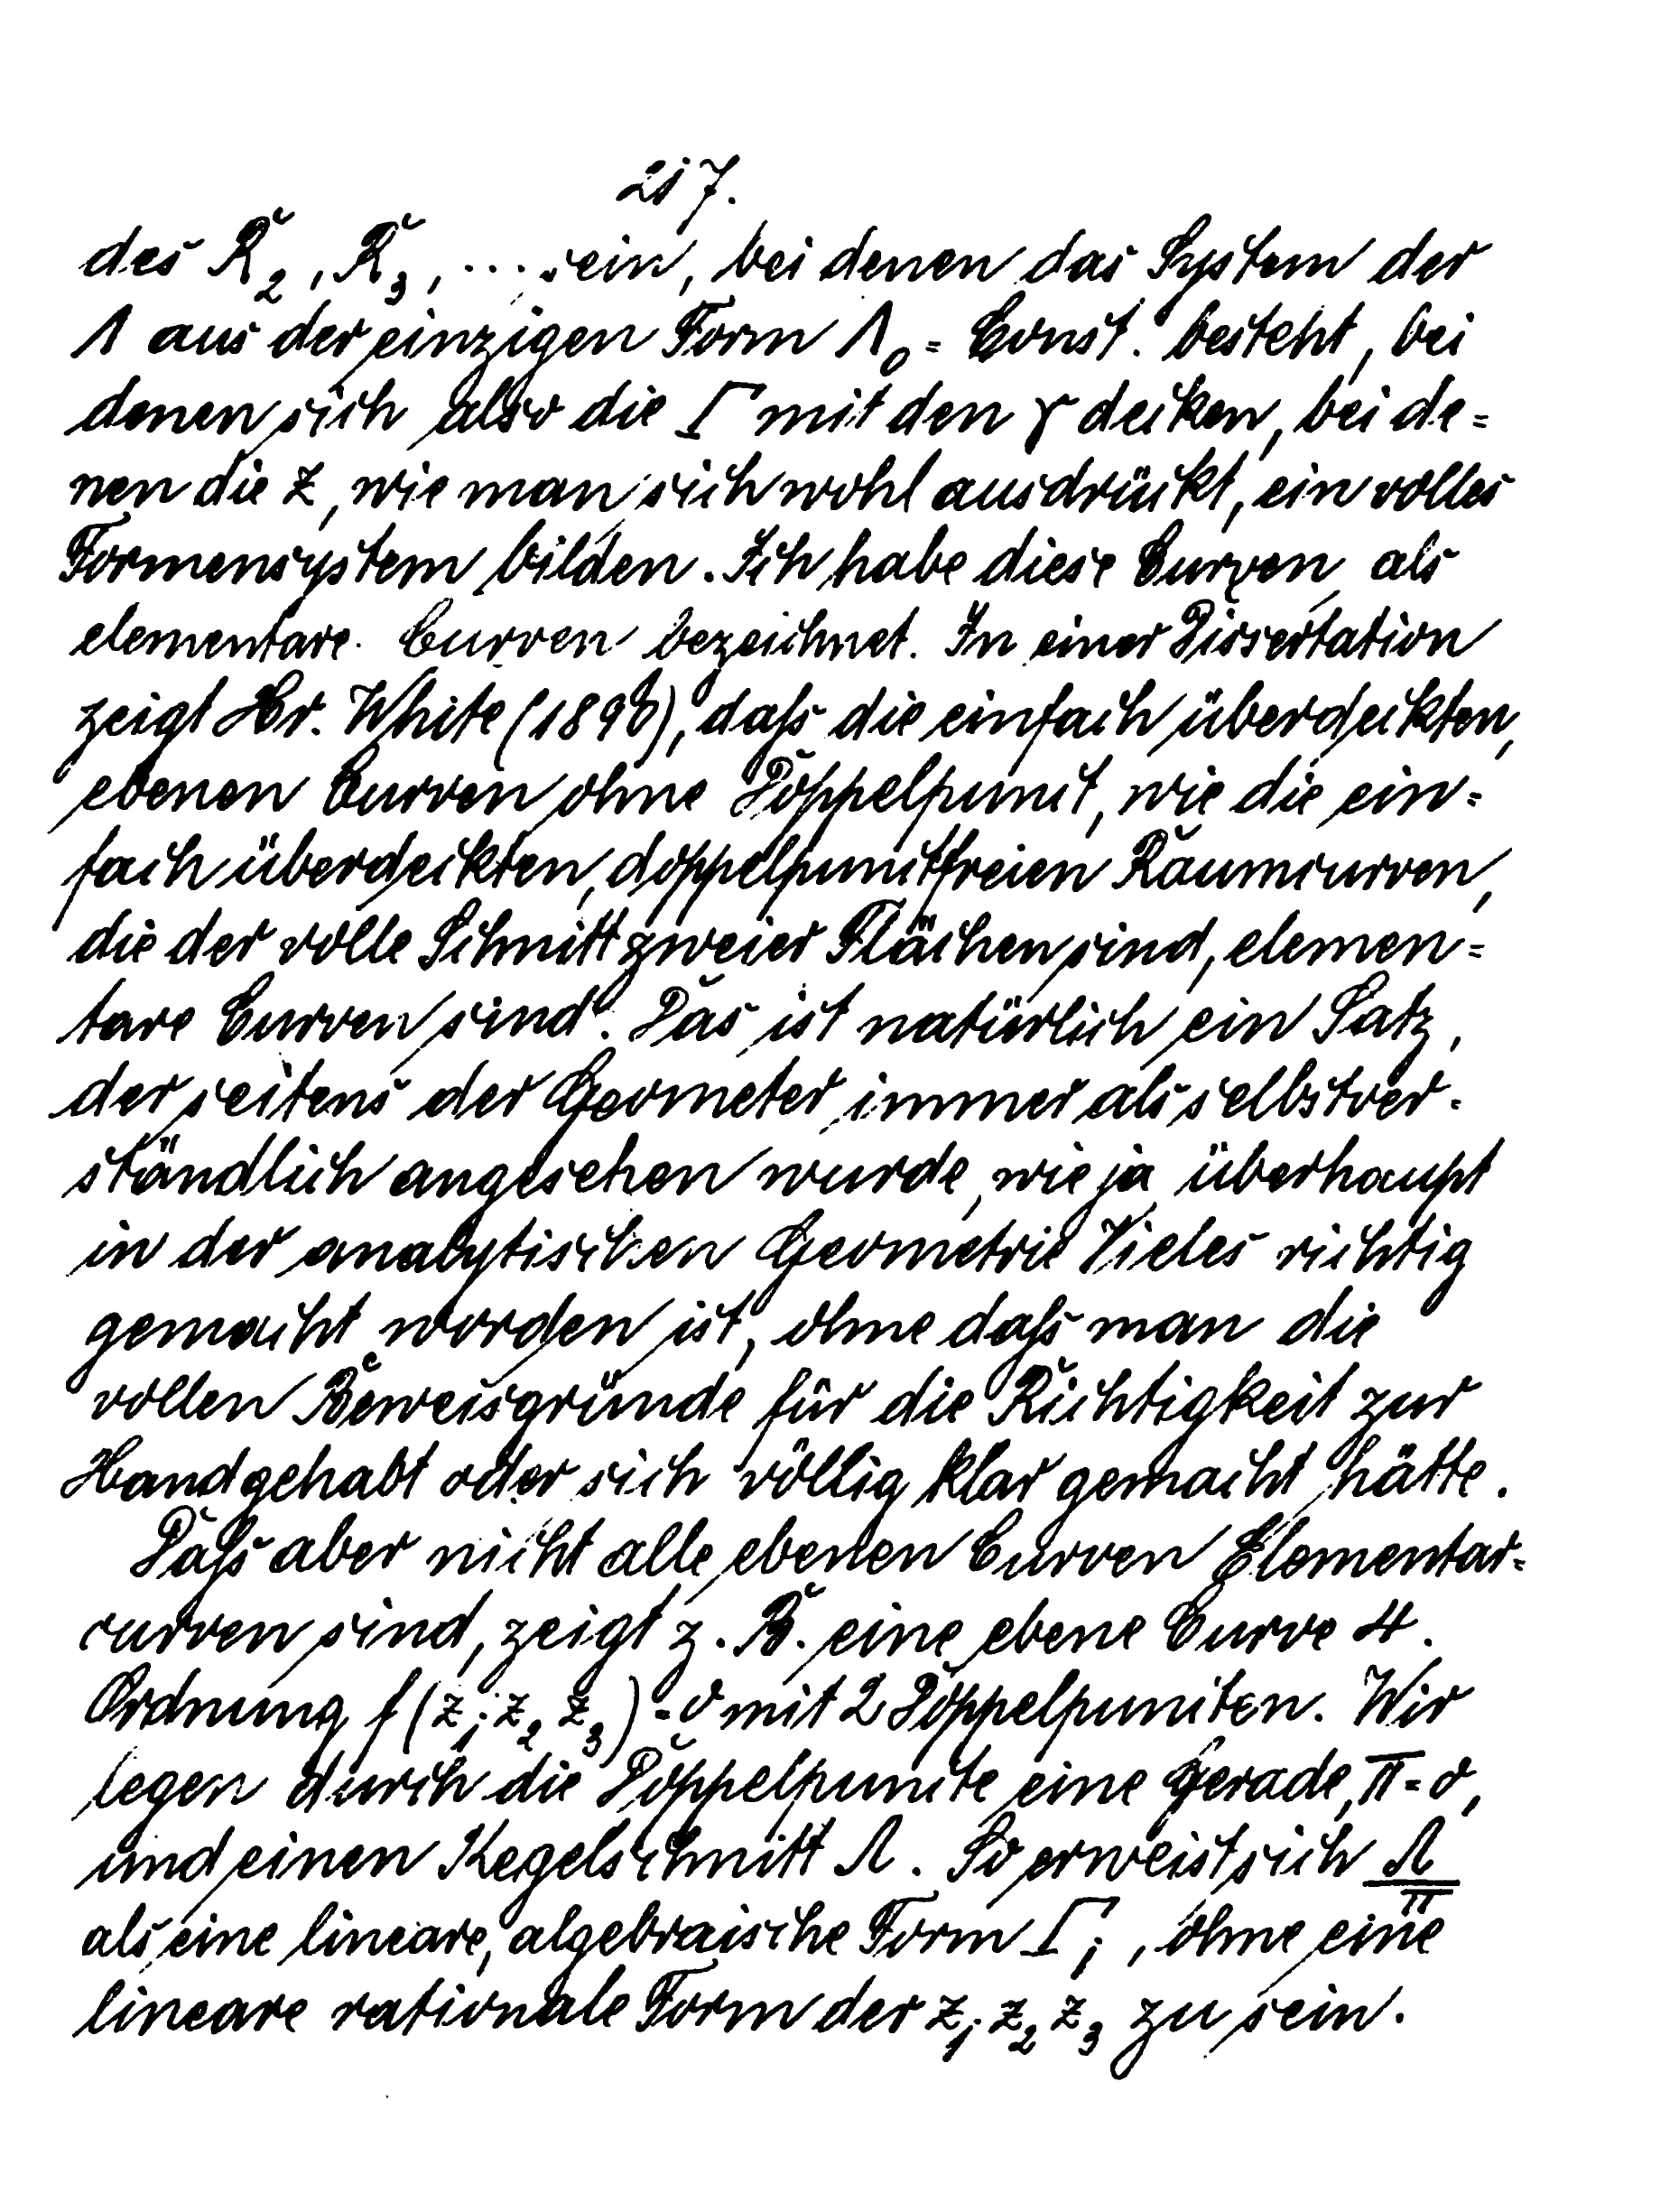 217.
des R₂, R₃, ... sein, bei denen das System der
Λ aus der einzigen Form Λ₀ = Const. besteht, bei
denen sich also die Γ mit den γ decken, bei de=
nen die z, wie man sich wohl ausdrückt, ein volles
Formensystem bilden. Ich habe diese Curven als
elementare Curven bezeichnet. In einer Dissertation
zeigt Hr. White (1890), daß die einfach überdeckten,
ebenen Curven ohne Doppelpunct, wie die ein=
fach überdeckten, doppelpunctfreien Raumcurven,
die der volle Schnitt zweier Flächen sind, elemen=
tare Curven sind. Das ist natürlich ein Satz,
der seitens der Geometer immer als selbstver-
ständlich angesehen wurde, wie ja überhaupt
in der analytischen Geometrie Vieles richtig
gemacht worden ist, ohne daß man die
vollen Beweisgründe für die Richtigkeit zur
Hand gehabt oder sich völlig klar gemacht hätte.
Daß aber nicht alle ebenen Curven Elementar=
curven sind, zeigt z. B. eine ebene Curve 4.
Ordnung f(z₁ z₂ z₃) = 0 mit 2 Doppelpuncten. Wir
legen durch die Doppelpuncte eine Gerade, π = 0,
und einen Kegelschnitt Λ. So erweist sich Λ/π
als eine lineare, algebraische Form Γ₁, ohne eine
lineare rationale Form der z₁ z₂ z₃ zu sein.